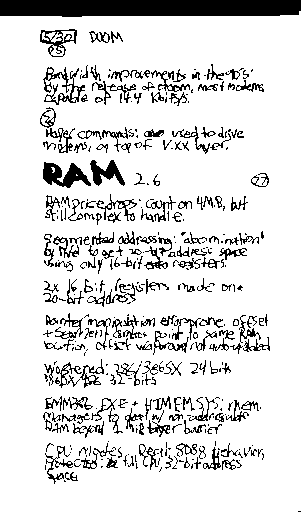 5/30 DOOM
25
Bandwidth improvements in the 90's:
by the release of doom, most modems
capable of 14.4 Kbit/s.
26
Hayes commands: used to drive
modems, on top of V.xx layer.
RAM 2.6 27
RAM price drops: count on 4MB, but
still complex to handle.
Segmented addressing: "abomination"
by Intel to get 20-bit address space
using only 16-bit registers.
2x 16 bit registers made one
20-bit address
Pointer manipulation error prone: offset
+ segment combos point to same RAM
location, offset wraparound not auto-updated
Worsened: 286/386SX 24 bit
386DX/486 32-bits
EMM386.EXE + HIMEM.SYS: mem.
managers to deal w/ non addressable
RAM beyond 1 MiB barrier
CPU modes: Real: 8088 behavior,
Protected: full CPU, 32-bit address
space